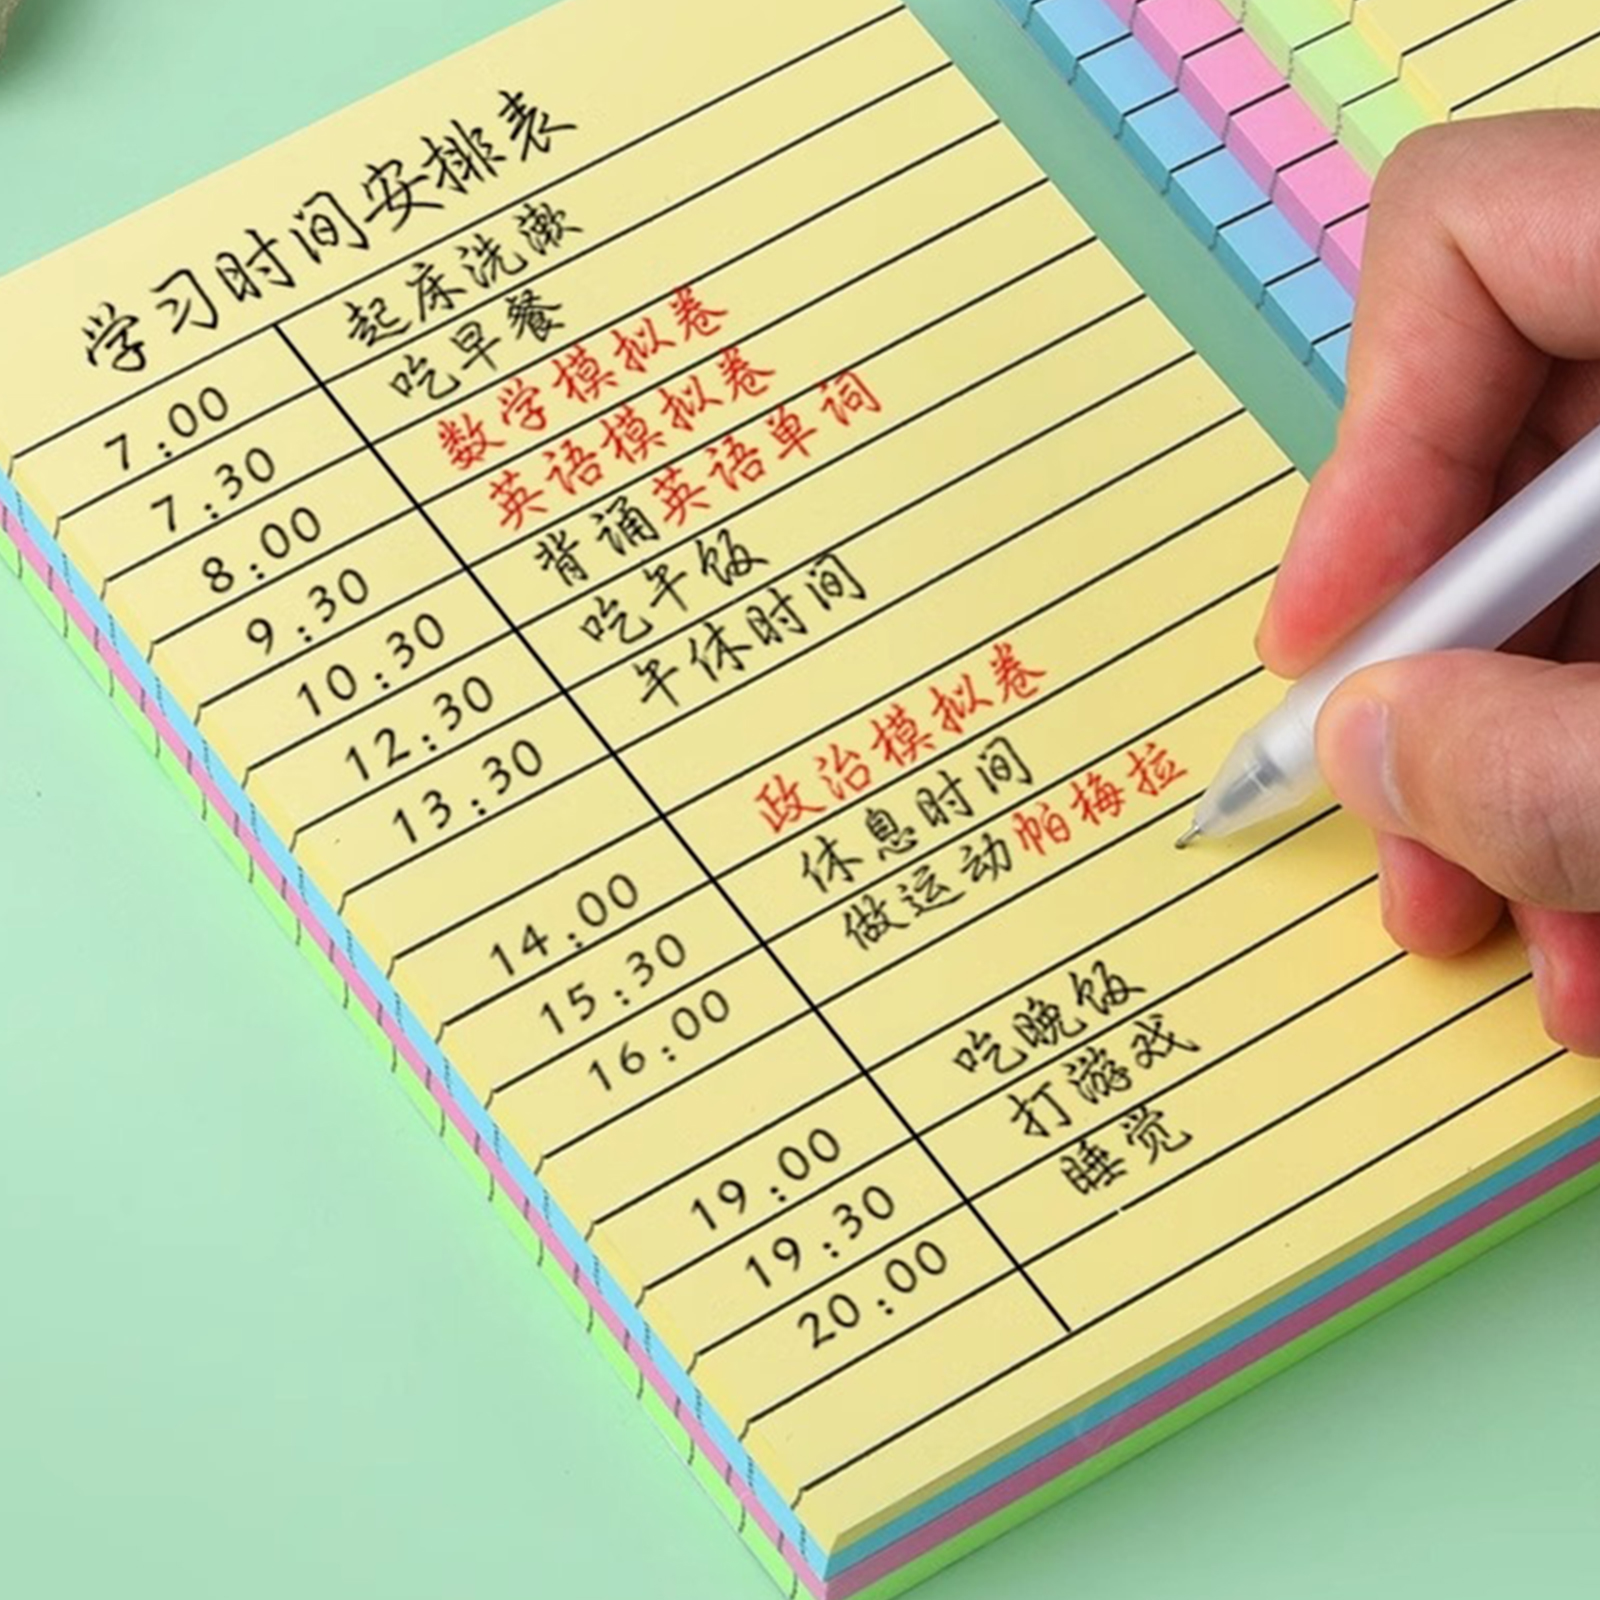 学习时间安排表
7:00 起床洗漱
7:30 吃早餐
8:00 数学模拟卷
9:30 英语模拟卷
10:30 背诵英语单词
12:30 吃午饭
13:30 午休时间
14:00 政治模拟卷
15:30 休息时间
16:00 做运动帕梅拉
19:00 吃晚饭
19:30 打游戏
20:00 睡觉